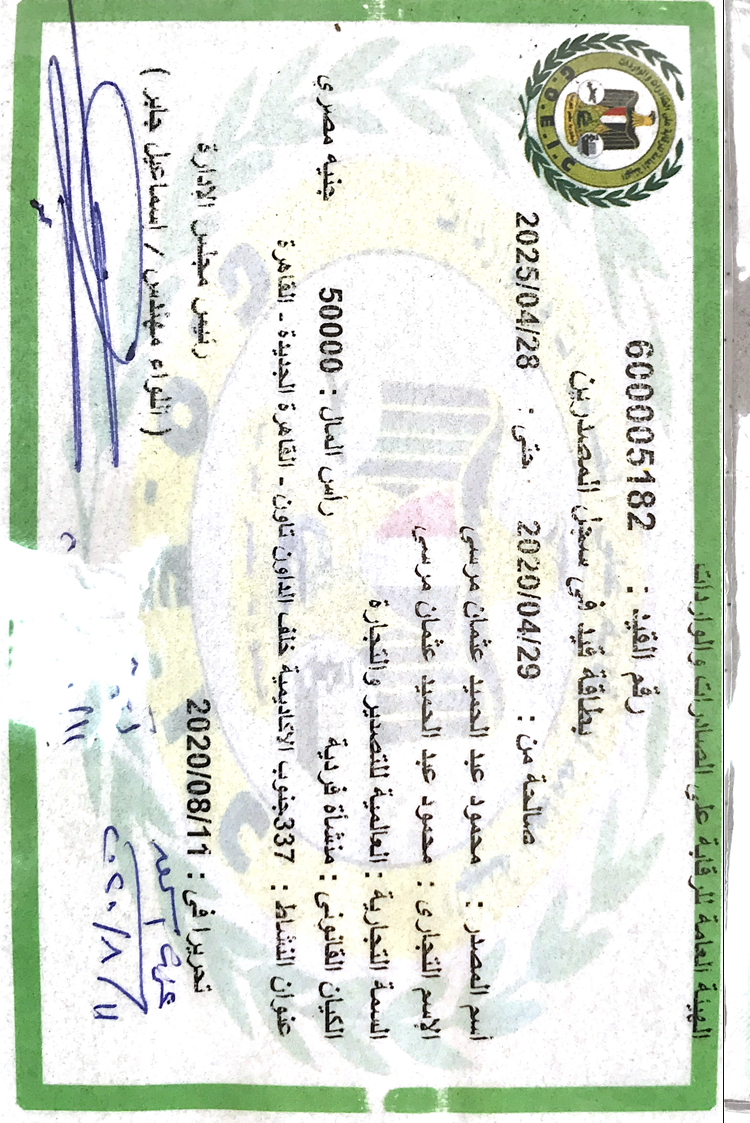 الهيئة العامة للرقابة على الصادرات والواردات
G.O.E.I.C
رقم القيد : 600005182
بطاقة قيد في سجل المصدرين
صالحة من : 2020/04/29 حتى : 2025/04/28
أسم المصدر : محمود عبد الحميد عثمان مرسى
الإسم التجارى : محمود عبد الحميد عثمان مرسى
السمة التجارية : العالمية للتصدير والتجارة
الكيان القانونى : منشأة فردية رأس المال : 50000 جنيه مصرى
عنوان النشاط : 337جنوب الاكاديمية خلف الداون تاون - القاهرة الجديدة - القاهرة
تحريرا فى : 2020/08/11 رئيس مجلس الإدارة
( اللواء مهندس / اسماعيل جابر )
٢٠٢٠/٨/١١